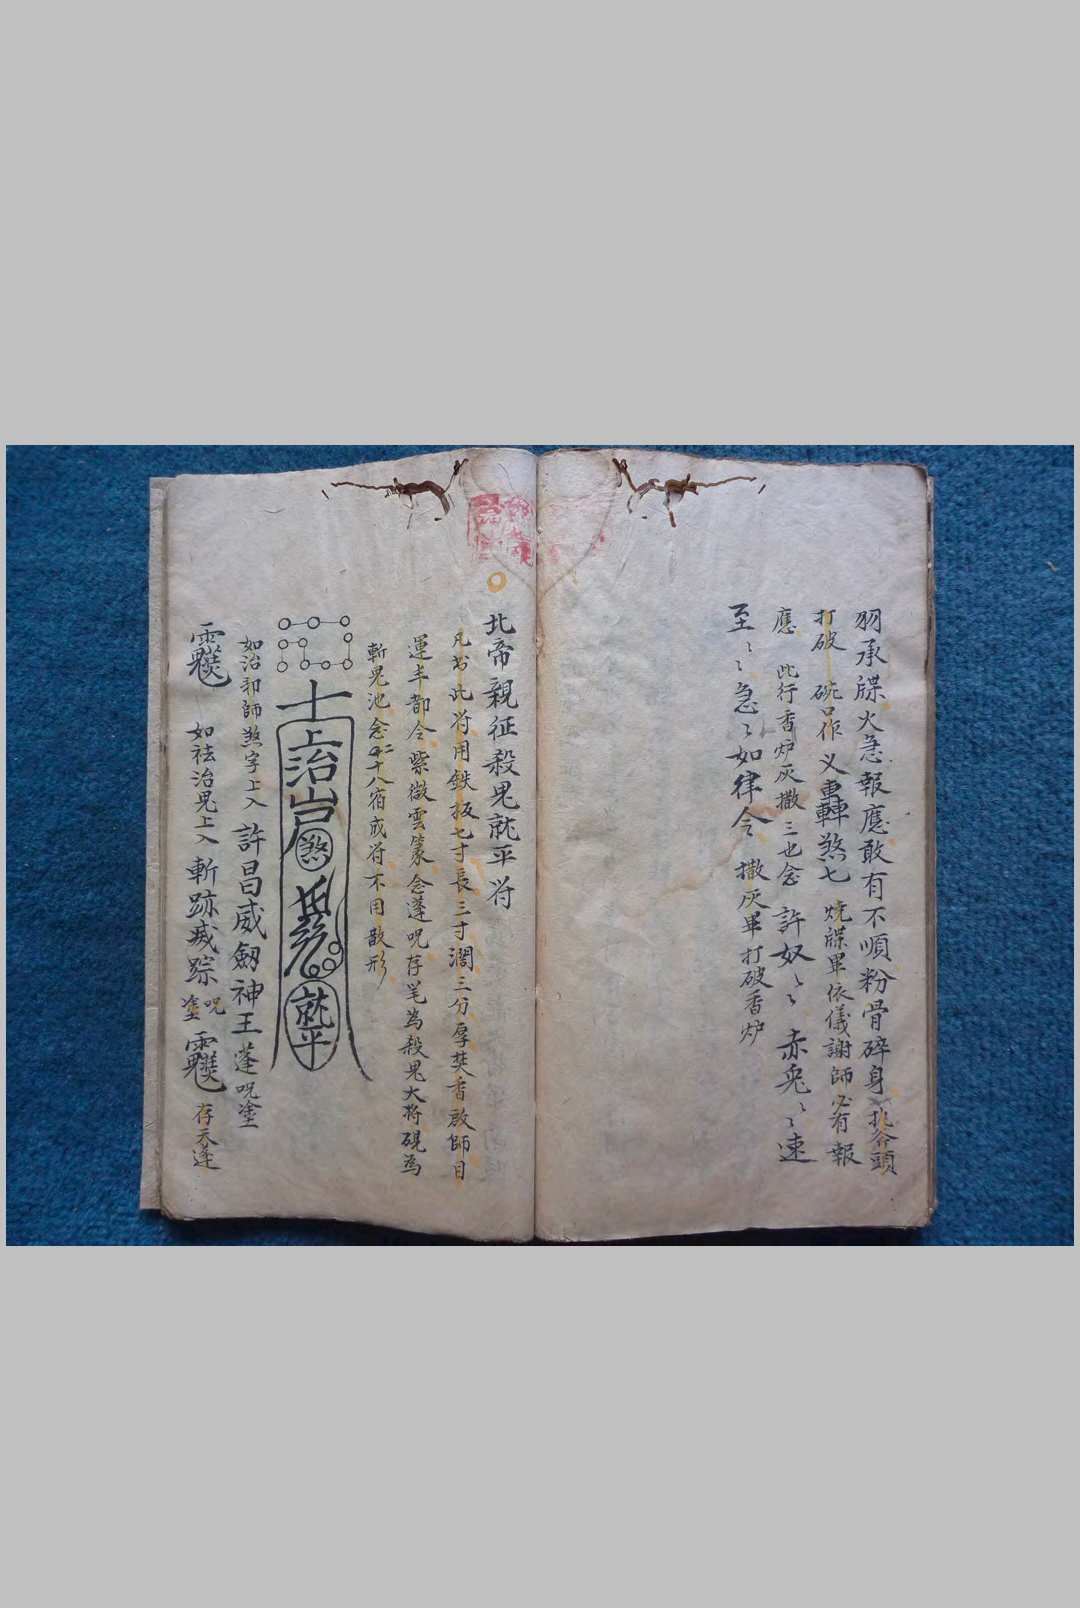 羽承牒火急報應敢有不順粉骨碎身 斧頭
打破 碗作 义 轟轉煞七 燒牒畢依儀謝師必有報
應 此行香炉灰撒三也念 許奴〻〻 赤兎〻〻速
至〻〻急〻如律令 撒灰畢打破香炉
北帝親征殺鬼就平符
凡书此符用鉄板七寸長三寸濶三分厚焚香啟師目
運丰都令紫微雲篆念蓬呪存笔為殺鬼大将硯為
斬鬼池念二十八宿成符不用散形
十上治
煞
就平
如治邪師煞字上入 許昌威劒神王 蓬呪塗
如祛治鬼上入 斬跡滅踪 呪塗 存天蓬